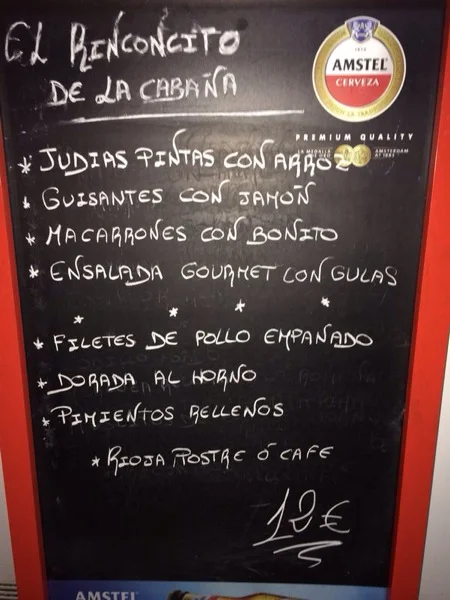 EL RINCONCITO
DE LA CABAÑA
1870
AMSTEL
CERVEZA
PREMIUM QUALITY
* JUDIAS PINTAS CON ARROZ
* GUISANTES CON JAMÓN
* MACARRONES CON BONITO
* ENSALADA GOURMET CON GULAS
* * * *
* FILETES DE POLLO EMPAÑADO
* DORADA AL HORNO
* PIMIENTOS RELLENOS
* RIOJA POSTRE Ó CAFE
12€
AMSTEL